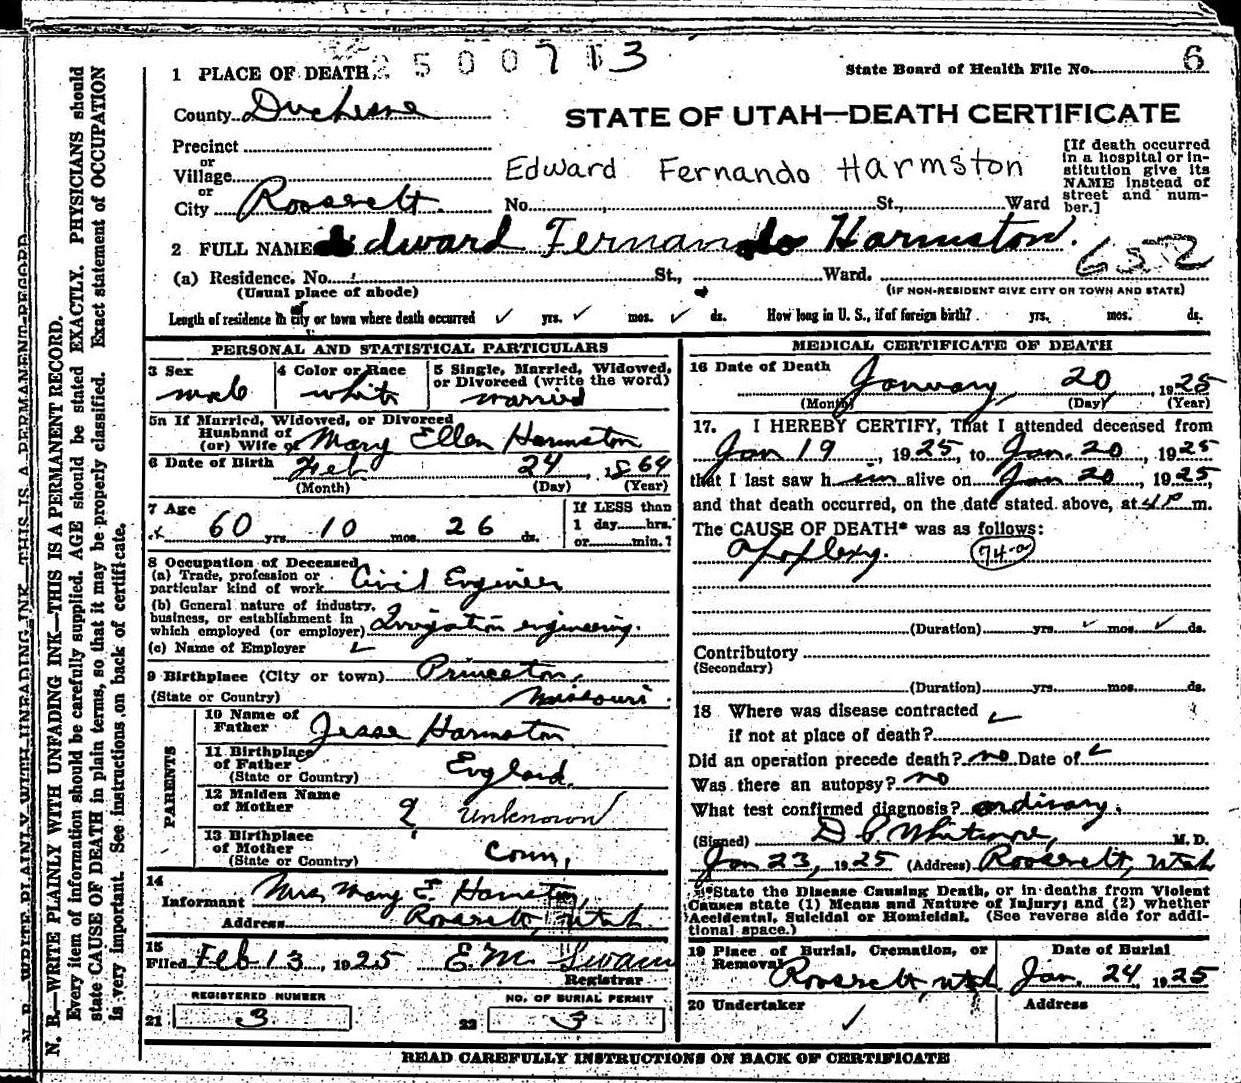 2500713
6
1 PLACE OF DEATH
State Board of Health File No.
County Duchesne
STATE OF UTAH—DEATH CERTIFICATE
Precinct
or
Village
or
City Roosevelt
Edward Fernando Harmston
No. St., Ward
[If death occurred
in a hospital or in-
stitution give its
NAME instead of
street and num-
ber.]
2 FULL NAME Edward Fernando Harmston.
652
(a) Residence. No. St., Ward.
(Usual place of abode)
(IF NON-RESIDENT GIVE CITY OR TOWN AND STATE)
Length of residence in city or town where death occurred ✓ yrs. ✓ mos. ✓ ds. How long in U. S., if of foreign birth? yrs. mos. ds.
PERSONAL AND STATISTICAL PARTICULARS
3 Sex
male
4 Color or Race
white
5 Single, Married, Widowed,
or Divorced (write the word)
married
5a If Married, Widowed, or Divorced
Husband of
(or) Wife of Mary Ellen Harmston
6 Date of Birth Feb 24, 1864
(Month) (Day) (Year)
7 Age
60 yrs. 10 mos. 26 ds.
If LESS than
1 day hrs.
or min.?
8 Occupation of Deceased
(a) Trade, profession or
particular kind of work Civil Engineer
(b) General nature of industry,
business, or establishment in
which employed (or employer) Irrigation engineering.
(c) Name of Employer ✓
9 Birthplace (City or town) Princeton,
(State or Country) Missouri.
PARENTS
10 Name of
Father Jesse Harmston
11 Birthplace
of Father
(State or Country) England.
12 Maiden Name
of Mother Unknown
13 Birthplace
of Mother
(State or Country) Conn,
14
Informant Mrs Mary E. Harmston,
Address Roosevelt, Utah
15
Filed Feb 13, 1925 E. M. Swain
Registrar
REGISTERED NUMBER
21 3
NO. OF BURIAL PERMIT
22 3
MEDICAL CERTIFICATE OF DEATH
16 Date of Death January, 20 1925
(Month) (Day) (Year)
17. I HEREBY CERTIFY, That I attended deceased from
Jan 19, 1925, to Jan. 20, 1925
that I last saw h im alive on Jan 20, 1925,
and that death occurred, on the date stated above, at 4 P m.
The CAUSE OF DEATH* was as follows:
Apoplexy. 74-a
(Duration) yrs. ✓ mos. ✓ ds.
Contributory
(Secondary)
(Duration) yrs. mos. ds.
18 Where was disease contracted ✓
if not at place of death?
Did an operation precede death? no Date of ✓
Was there an autopsy? no
What test confirmed diagnosis? ordinary.
(Signed) D P Whitmore, M. D.
Jan 23, 1925 (Address) Roosevelt, Utah
*State the Disease Causing Death, or in deaths from Violent
Causes state (1) Means and Nature of Injury; and (2) whether
Accidental, Suicidal or Homicidal. (See reverse side for addi-
tional space.)
19 Place of Burial, Cremation, or
Removal Roosevelt, Utah
Date of Burial
Jan. 24 1925
20 Undertaker ✓
Address
READ CAREFULLY INSTRUCTIONS ON BACK OF CERTIFICATE
N. B.—WRITE PLAINLY WITH UNFADING INK—THIS IS A PERMANENT RECORD.
Every item of information should be carefully supplied. AGE should be stated EXACTLY. PHYSICIANS should
state CAUSE OF DEATH in plain terms, so that it may be properly classified. Exact statement of OCCUPATION
is very important. See instructions on back of certificate.
N. B. WRITE PLAINLY WITH UNFADING INK THIS IS A PERMANENT RECORD